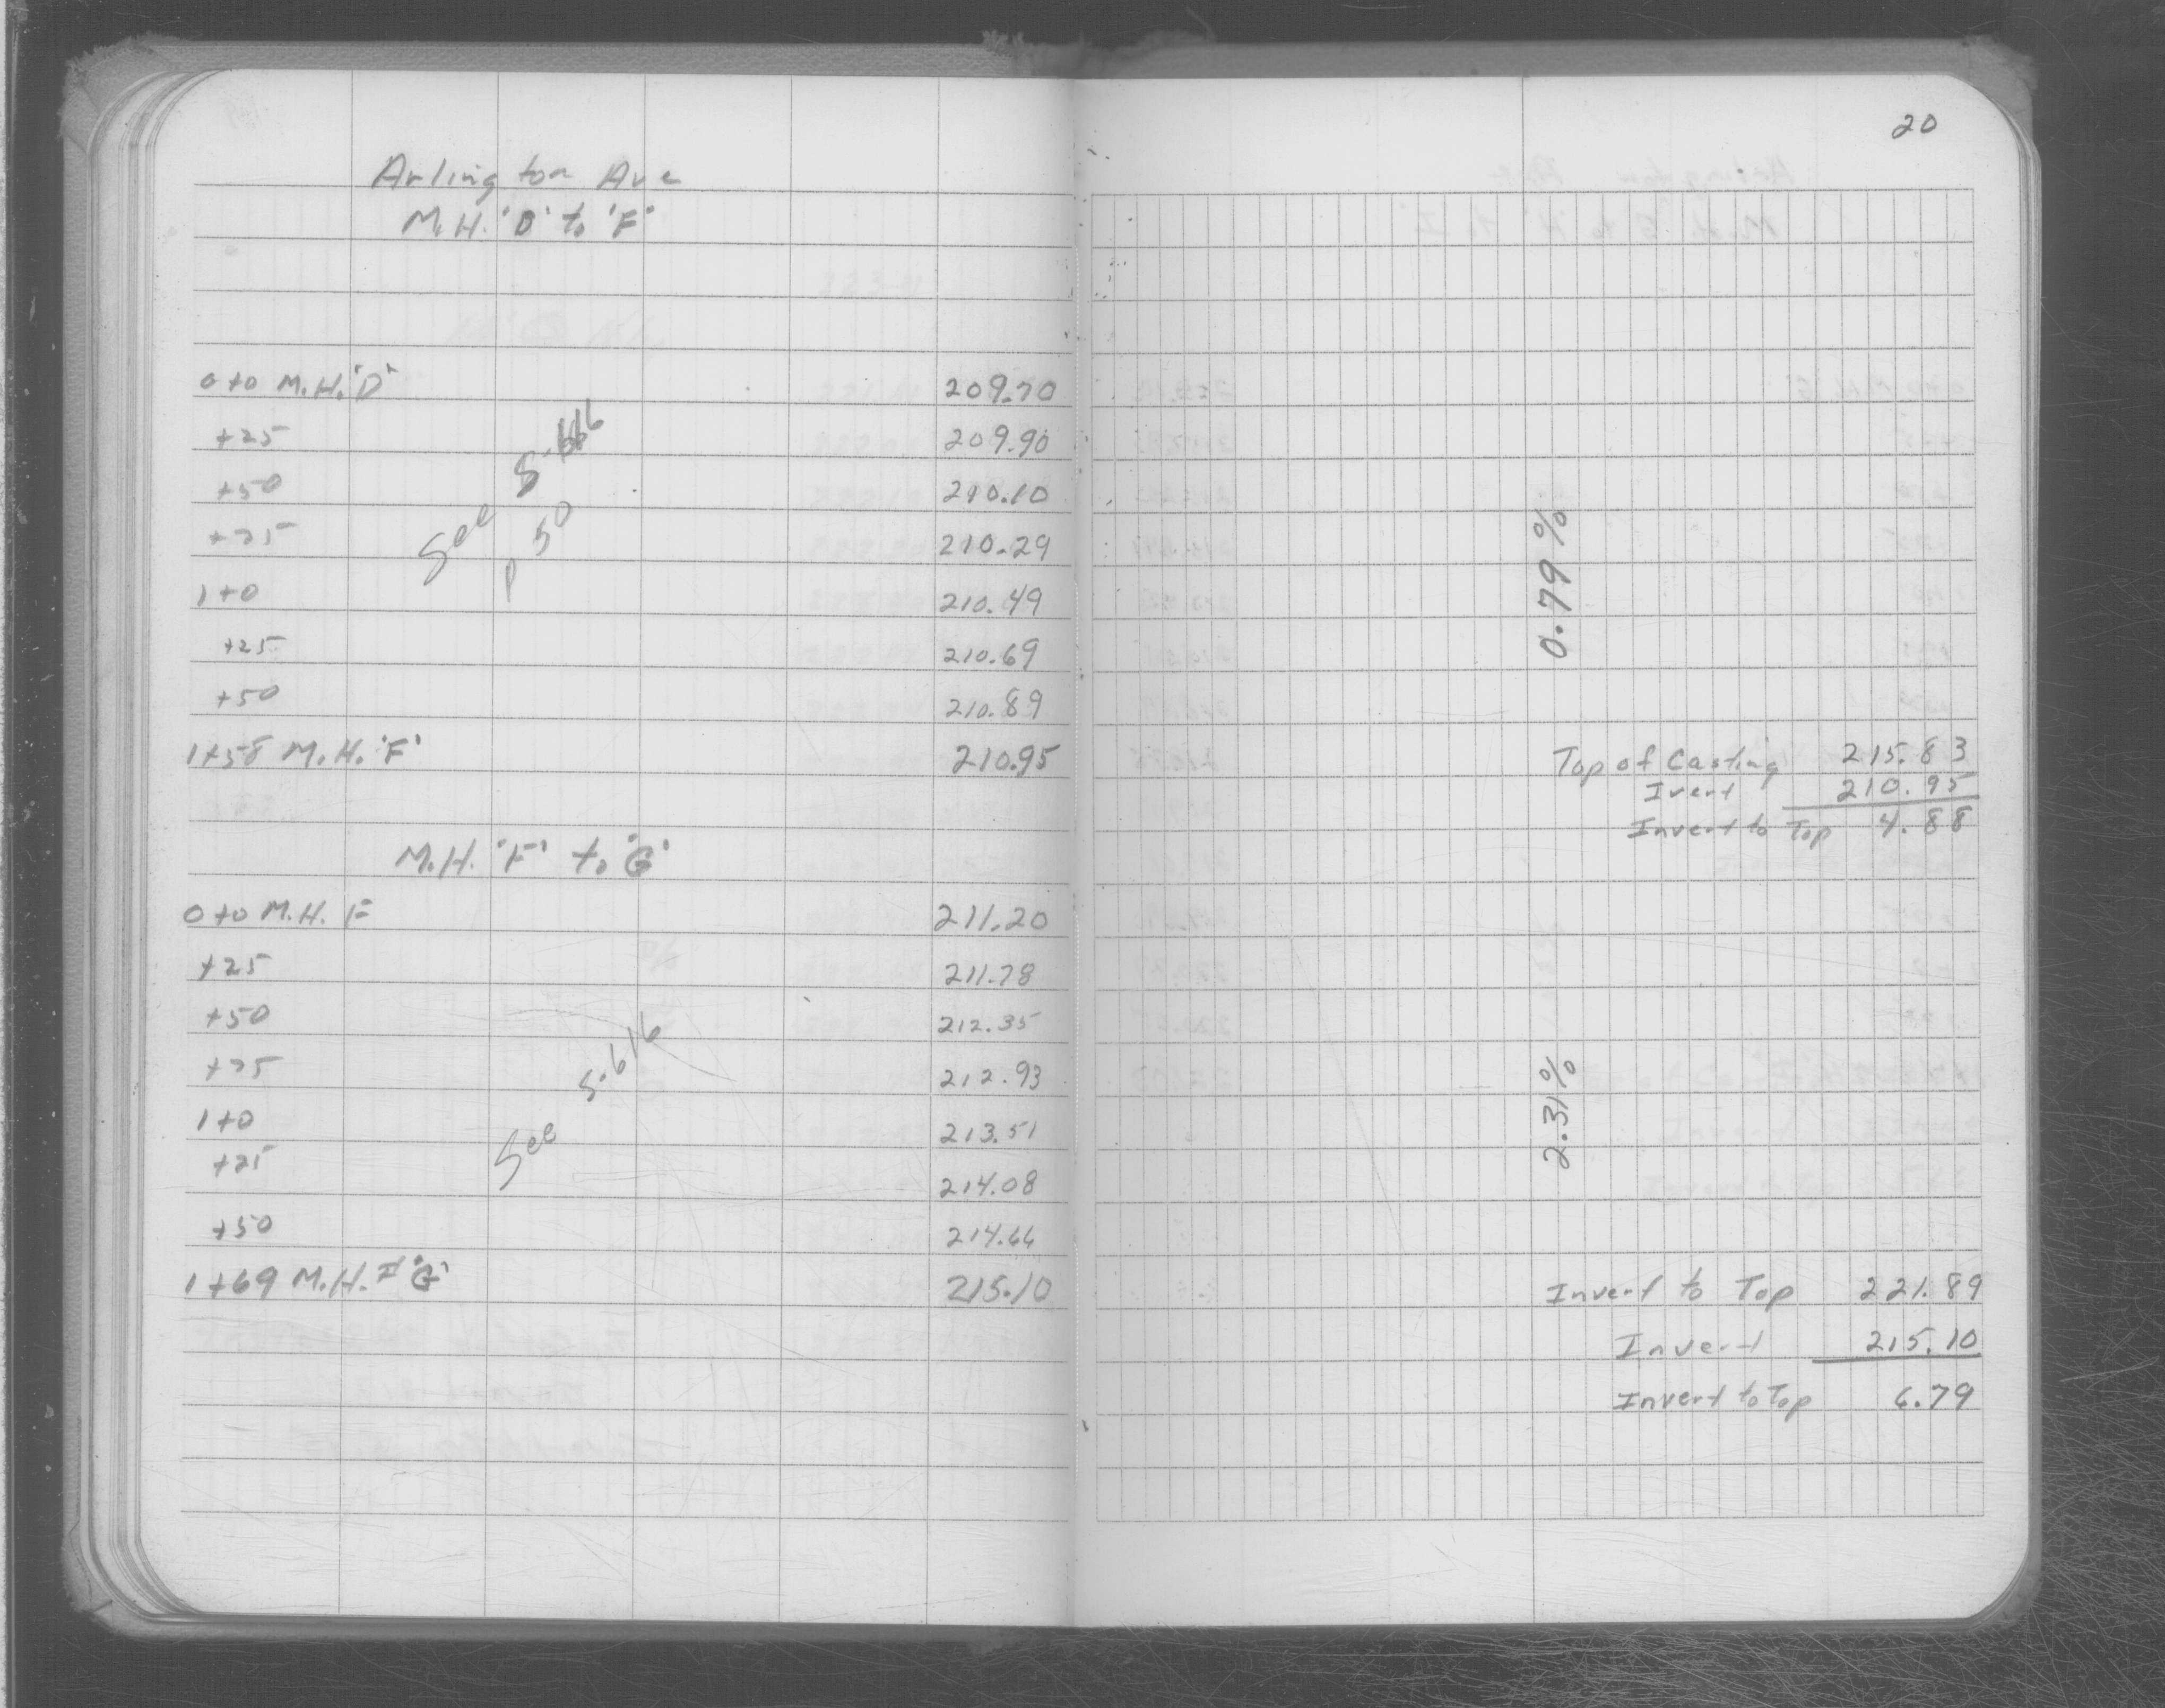 20
Arlington Ave
M.H. "D" to "F"
0+0 M.H. "D" 209.70
+25 209.90
+50 210.10
+75 210.29
1+0 210.49
+25 210.69
+50 210.89
1+58 M.H. "F" 210.95
See S-616
P 50
0.79%
Top of Casting 215.83
Ivert 210.95
Invert to Top 4.88
M.H. "F" to "G"
0+0 M.H. F 211.20
+25 211.78
+50 212.35
+75 212.93
1+0 213.51
+25 214.08
+50 214.66
1+69 M.H. "G" 215.10
See S-616
2.31%
Invert to Top 221.89
Invert 215.10
Invert to Top 6.79